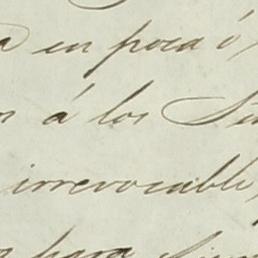 en poca ó
á los
irrevocable,
para